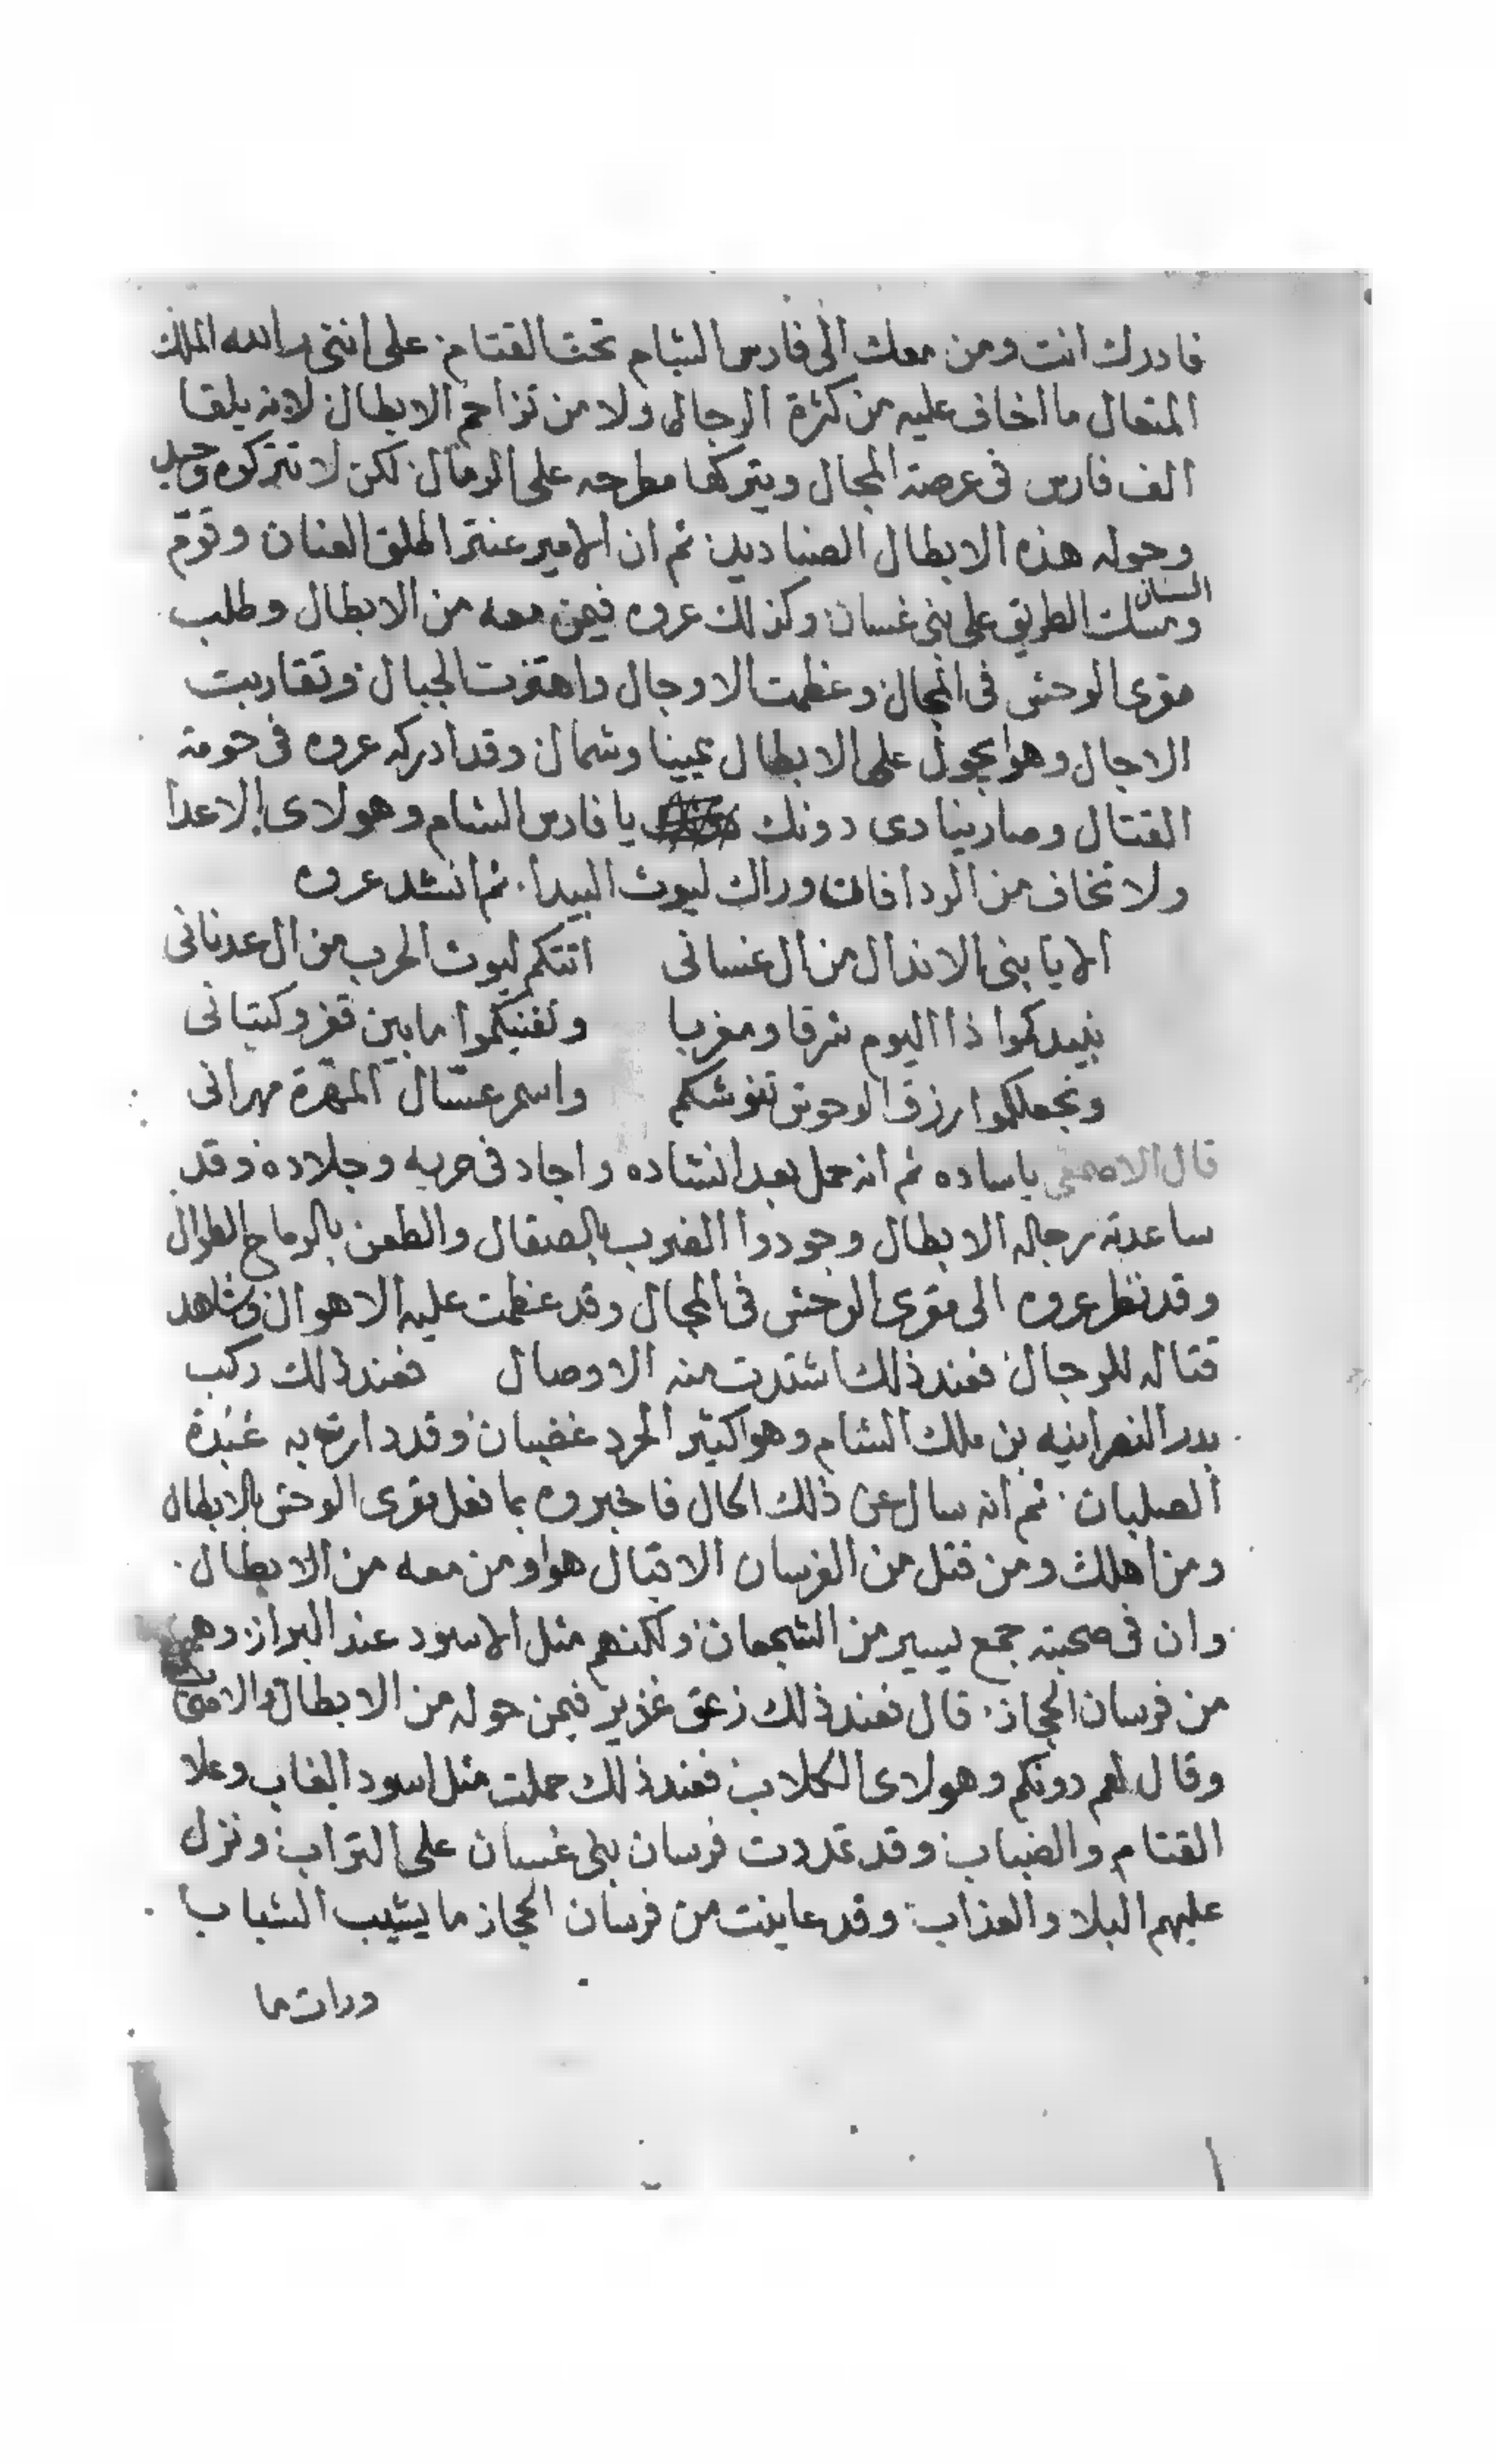 فادرك انت ومن معك الى فارس الشام تحت القتام على انني والله الملك
المتعال ما اخاف عليه من كثرة الرجال ولا من تزاحم الابطال لانه يلقا
الف فارس فى عرصة المجال ويتركها مطرحه على الرمال لكن لا تتركوه وحيد
وحوله هذه الابطال الصناديد ثم ان الامير عنتر اطلق العنان وقوّم
السنان
ومسك الطريق على بنى غسان وكذلك عروه فيمن معه من الابطال وطلب
مقرى الوحش فى المجال وعظمت الاوجال واهتزت الجبال وتقاربت
الاجال وهوا يجول على الابطال يمينا وشمال وقد ادركه عروه فى حومة
القتال وصار ينادى دونك يا فارس الشام وهولاى الاعدا
ولا تخاف من الردا فان وراك ليوث البيدا ثم انشد عروه
الا يا بنى الاندال من ال غسانى اتتكم ليوث الحرب من ال عدنانى
نبيدكموا ذا اليوم شرقا ومغربا ونفنيكموا ما بين قفز وكتبانى
ونجعلكموا رزق الوحوش تنوشكم واسمر عسّال المهزة مهرانى
قال الاصمعى ياساده ثم انه حمل بعد انشاده واجاد فى حربه وجلاده وقد
ساعدته رجاله الابطال وجودوا الضرب بالصقال والطعن بالرماح الطوال
وقد نظر عروه الى مقرى الوحش فى المجال وقد عظمت عليه الاهوال وشاهد
قتاله للرجال فعند ذلك اشتدت منه الاوصال فعند ذلك ركب
بدر النصرانيه بن ملك الشام وهوا كثير الحرد غضبان وقد دارت به عُبدة
الصلبان ثم انه سال عن ذلك الحال فاخبروه بما فعل مقرى الوحش بالابطال
ومن اهلك ومن قتل من الفرسان الاقبال هوا ومن معه من الابطال
وان فى صحبته جمع يسير من الشجعان ولكنهم مثل الاسود عند البراز وهم
من فرسان الحجاز قال فعند ذلك زعق غزير فيمن حوله من الابطال
وقال لهم دونكم وهولاى الكلاب فعند ذلك حملت مثل اسود الغاب وعلا
القتام والضباب وقد تمددت فرسان بنى غسان على التراب ونزل
عليهم البلا والعذاب وقد عاينت من فرسان الحجاز ما يشيب الشباب
ورات ما